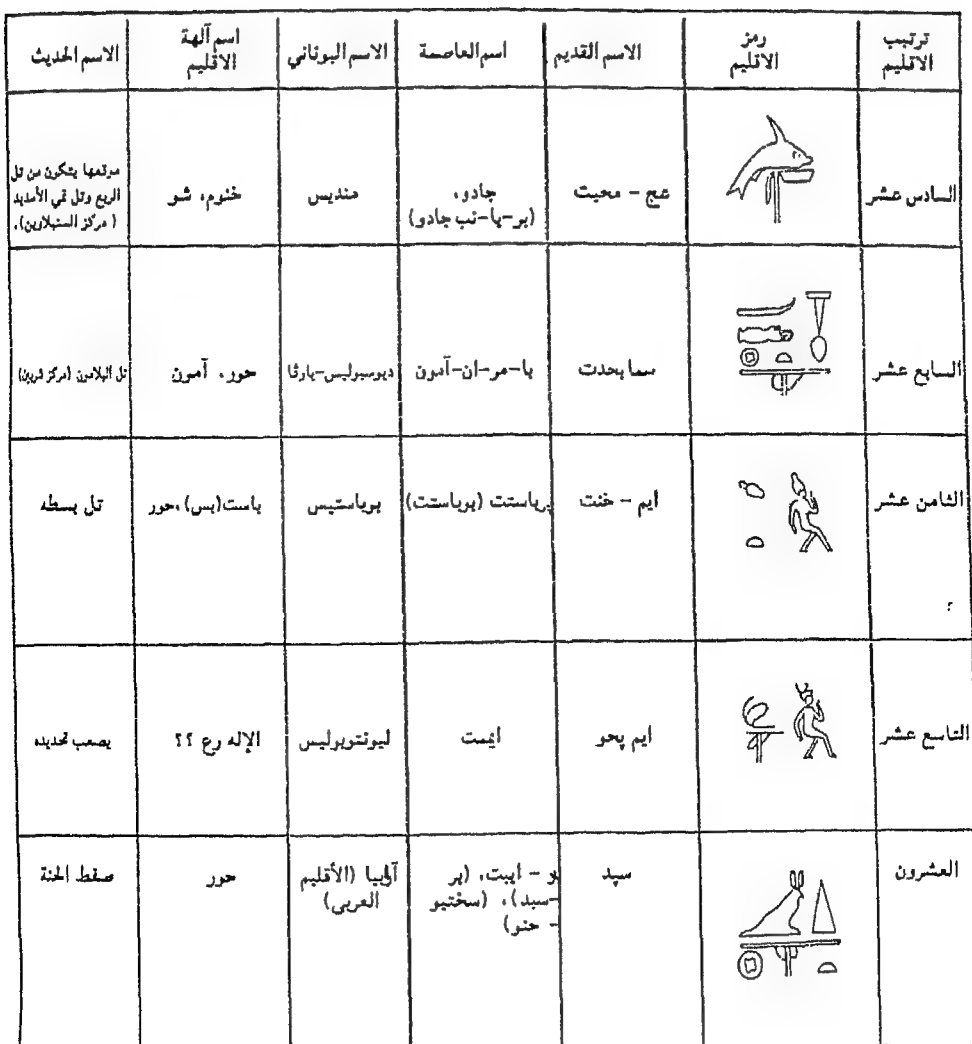 ترتيب الاقليم
رمز الاقليم
الاسم القديم
اسم العاصمة
الاسم اليوناني
اسم آلهة الاقليم
الاسم الحديث
السادس عشر
عج - محيت
جادو،
(بر-با-نب جادو)
منديس
خنوم، شو
موقعها يتكون من تل
الربع وتل تمي الأمديد
(مركز السنبلاوين).
السابع عشر
سما بحدت
با-مر-ان-آمون
ديوسبوليس-بارڤا
حور، آمون
تل البلامون (مركز شربين)
الثامن عشر
؟
ايم - خنت
برباستت (بوباستت)
بوباستيس
باست (بس)، حور
تل بسطه
التاسع عشر
ايم پحو
ايمت
ليونتوبوليس
الإله رع ؟؟
يصعب تحديده
العشرون
سپد
و - ايبت، (پر
-سبد)، (سختيو
- حنو)
آرابيا (الأقليم
العربى)
حور
صفط الحنة